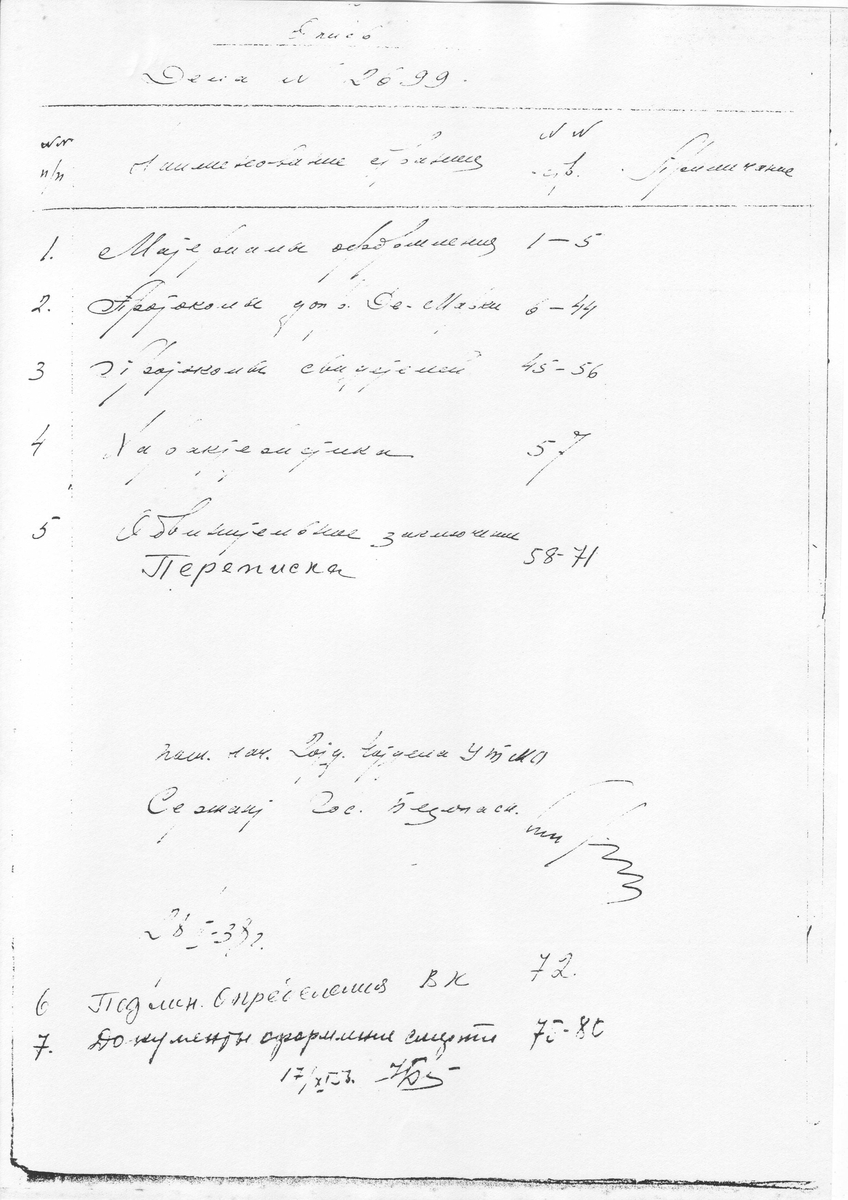 Опись
Дела № 2699.
№№ п/п Наименование страниц №№ стр. Примечание
1. Материалы оформления 1-5
2. Протоколы доп. Де-Мазки 6-44
3 Протоколы свидетелей 45-56
4 Характеристика 57
5 Обвинительное заключение
Переписка 58-71
пом. нач.
Сержант Гос. Безопасн.
28 I-38г.
6 Подлин. Определения ВК 72.
7. Документы оформление смерти 75-80